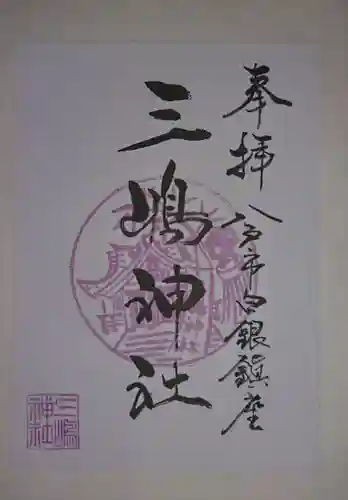 奉拝
八戸市白銀鎮座
三嶋神社
三嶋
神社